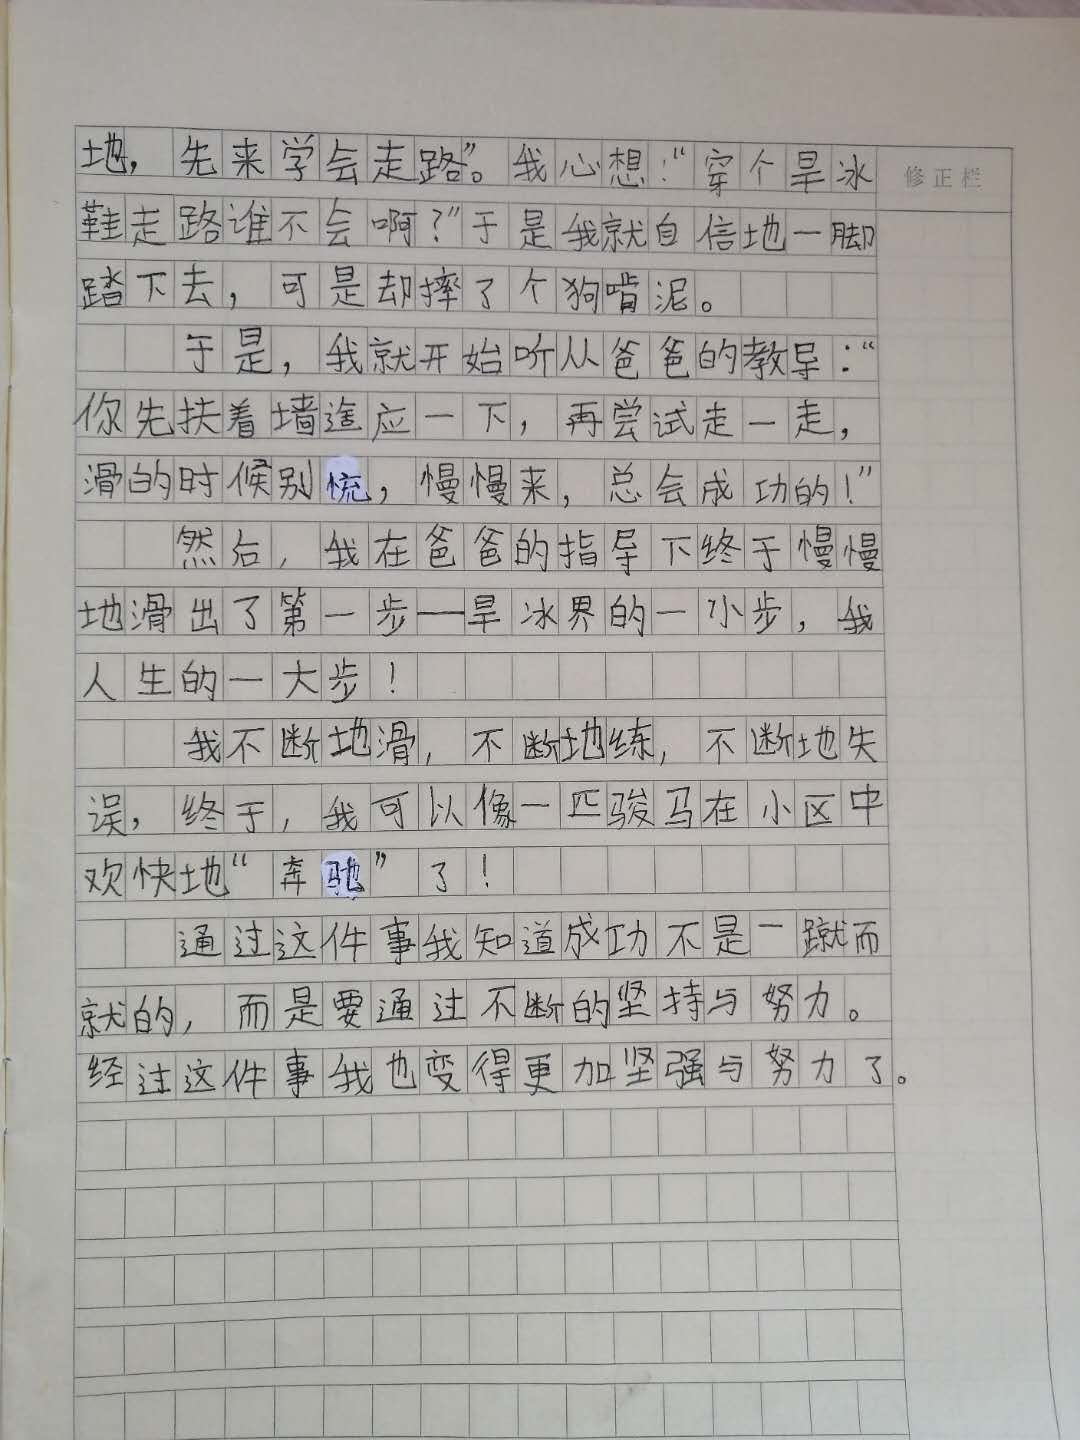 地，先来学会走路”。我心想：“穿个旱冰
修正栏
鞋走路谁不会啊？”于是我就自信地一脚
踏下去，可是却摔了个狗啃泥。
于是，我就开始听从爸爸的教导：“
你先扶着墙适应一下，再尝试走一走，
滑的时候别慌，慢慢来，总会成功的！”
然后，我在爸爸的指导下终于慢慢
地滑出了第一步——旱冰界的一小步，我
人生的一大步！
我不断地滑，不断地练，不断地失
误，终于，我可以像一匹骏马在小区中
欢快地“奔驰”了！
通过这件事我知道成功不是一蹴而
就的，而是要通过不断的坚持与努力。
经过这件事我也变得更加坚强与努力了。